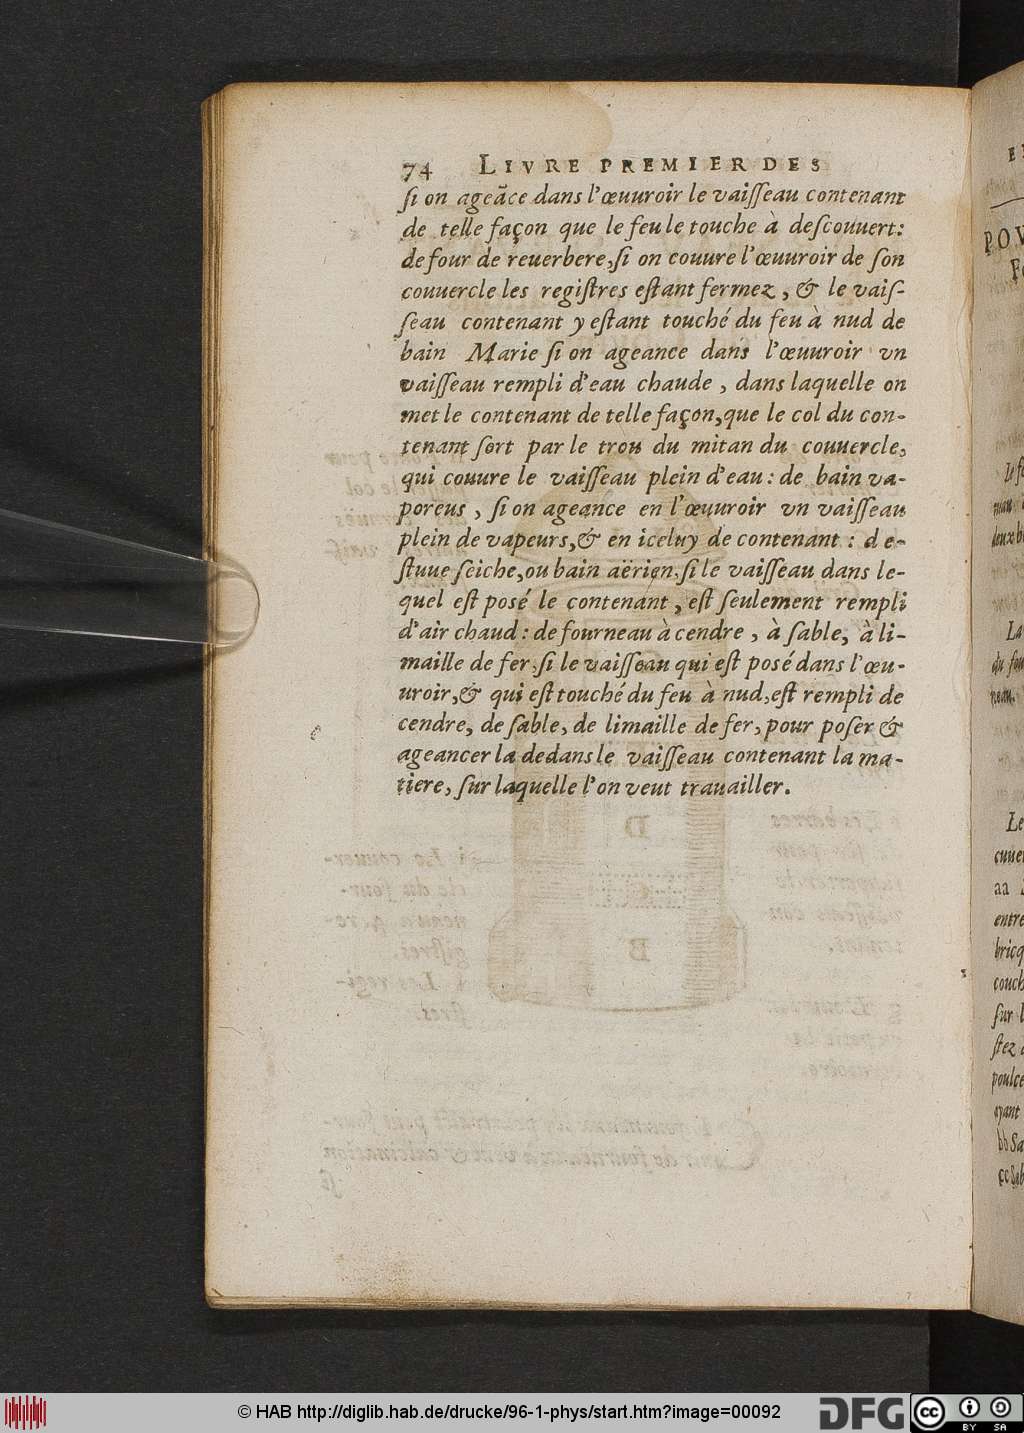 74 LIVRE PREMIER DES
si on ageãce dans l'œuuroir le vaisseau contenant
de telle façon que le feu le touche à descouuert:
de four de reuerbere, si on couure l'œuuroir de son
couuercle les registres estant fermez, & le vais-
seau contenant y estant touché du feu à nud de
bain Marie si on ageance dans l'œuuroir vn
vaisseau rempli d'eau chaude, dans laquelle on
met le contenant de telle façon, que le col du con-
tenant sort par le trou du mitan du couuercle,
qui couure le vaisseau plein d'eau: de bain va-
poreus, si on ageance en l'œuuroir vn vaisseau
plein de vapeurs, & en iceluy de contenant: d'e-
stuue seiche, ou bain aërien, si le vaisseau dans le-
quel est posé le contenant, est seulement rempli
d'air chaud: de fourneau à cendre, à sable, à li-
maille de fer, si le vaisseau qui est posé dans l'œu-
uroir, & qui est touché du feu à nud, est rempli de
cendre, de sable, de limaille de fer, pour poser &
ageancer la dedans le vaisseau contenant la ma-
tiere, sur laquelle l'on veut trauailler.
POV
La
du fou
neau.
Le
aa
entre
bricq
couch
sur l
stez
poulce
ayant
bb Sa
cc Sab
© HAB http://diglib.hab.de/drucke/96-1-phys/start.htm?image=00092
DFG
cc
BY SA